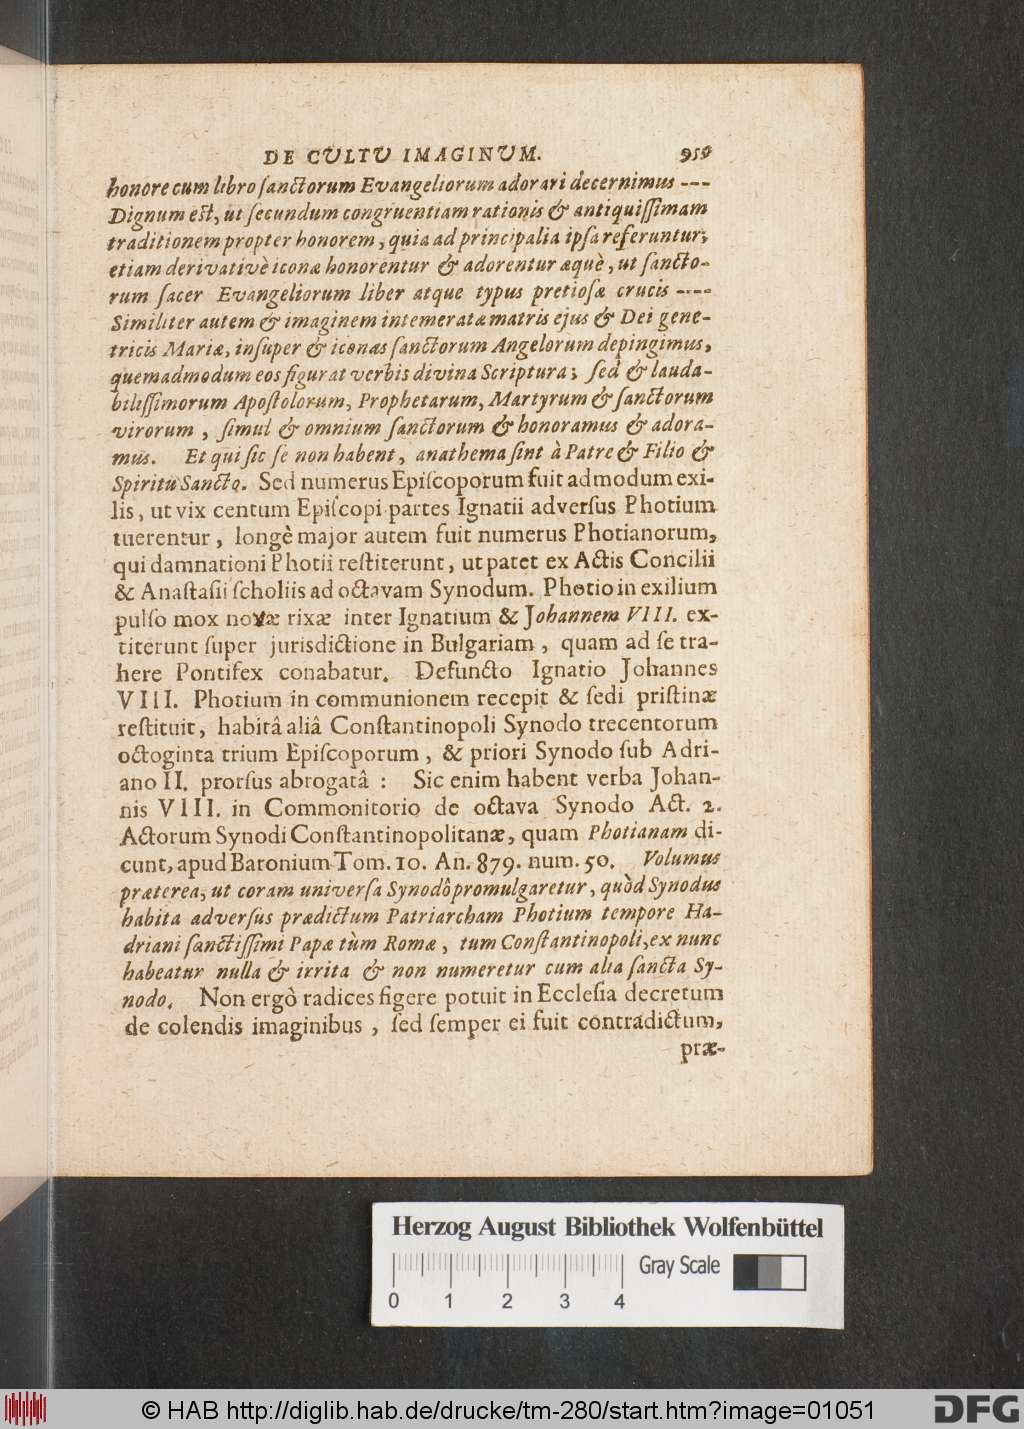 DE CULTU IMAGINUM. 959
honore cum libro sanctorum Evangeliorum adorari decernimus ---
Dignum est, ut secundum congruentiam rationis & antiquissimam
traditionem propter honorem, quia ad principalia ipsa referuntur;
etiam derivativè iconæ honorentur & adorentur æquè, ut sancto-
rum sacer Evangeliorum liber atque typus pretiosæ crucis ----
Similiter autem & imaginem intemeratæ matris ejus & Dei gene-
tricis Mariæ, insuper & iconas sanctorum Angelorum depingimus,
quemadmodum eos figurat verbis divina Scriptura; sed & lauda-
bilissimorum Apostolorum, Prophetarum, Martyrum & sanctorum
virorum, simul & omnium sanctorum & honoramus & adora-
mus. Et qui sic se non habent, anathema sint à Patre & Filio &
Spiritu Sancto. Sed numerus Episcoporum fuit admodum exi-
lis, ut vix centum Episcopi partes Ignatii adversus Photium
tuerentur, longè major autem fuit numerus Photianorum,
qui damnationi Photii restiterunt, ut patet ex Actis Concilii
& Anastasii scholiis ad octavam Synodum. Photio in exilium
pulso mox novæ rixæ inter Ignatium & Johannem VIII. ex-
titerunt super jurisdictione in Bulgariam, quam ad se tra-
here Pontifex conabatur. Defuncto Ignatio Johannes
VIII. Photium in communionem recepit & sedi pristinæ
restituit, habitâ aliâ Constantinopoli Synodo trecentorum
octoginta trium Episcoporum, & priori Synodo sub Adri-
ano II. prorsus abrogatâ : Sic enim habent verba Johan-
nis VIII. in Commonitorio de octava Synodo Act. 2.
Actorum Synodi Constantinopolitanæ, quam Photianam di-
cunt, apud Baronium Tom. 10. An. 879. num. 50. Volumus
præterea, ut coram universa Synodô promulgaretur, quòd Synodus
habita adversus prædictum Patriarcham Photium tempore Ha-
driani sanctissimi Papæ tùm Romæ, tum Constantinopoli, ex nunc
habeatur nulla & irrita & non numeretur cum alia sancta Sy-
nodo. Non ergò radices figere potuit in Ecclesia decretum
de colendis imaginibus, sed semper ei fuit contradictum,
præ-
Herzog August Bibliothek Wolfenbüttel
Gray Scale
0 1 2 3 4
© HAB http://diglib.hab.de/drucke/tm-280/start.htm?image=01051
DFG